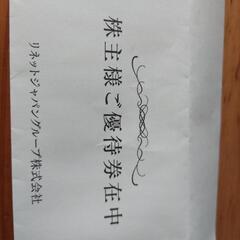 株主様ご優待券在中
リネットジャパングループ株式会社